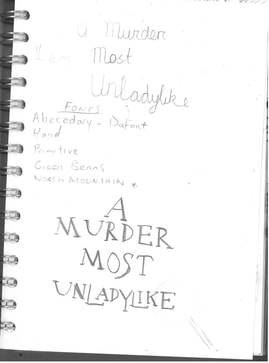 A Murder
Most
Unladylike
FONTS
Abecedary - DuFont
Hand
Primitive
Green Beans
NORTH MOUNTAIN *
A
MURDER
MOST
UNLADYLIKE